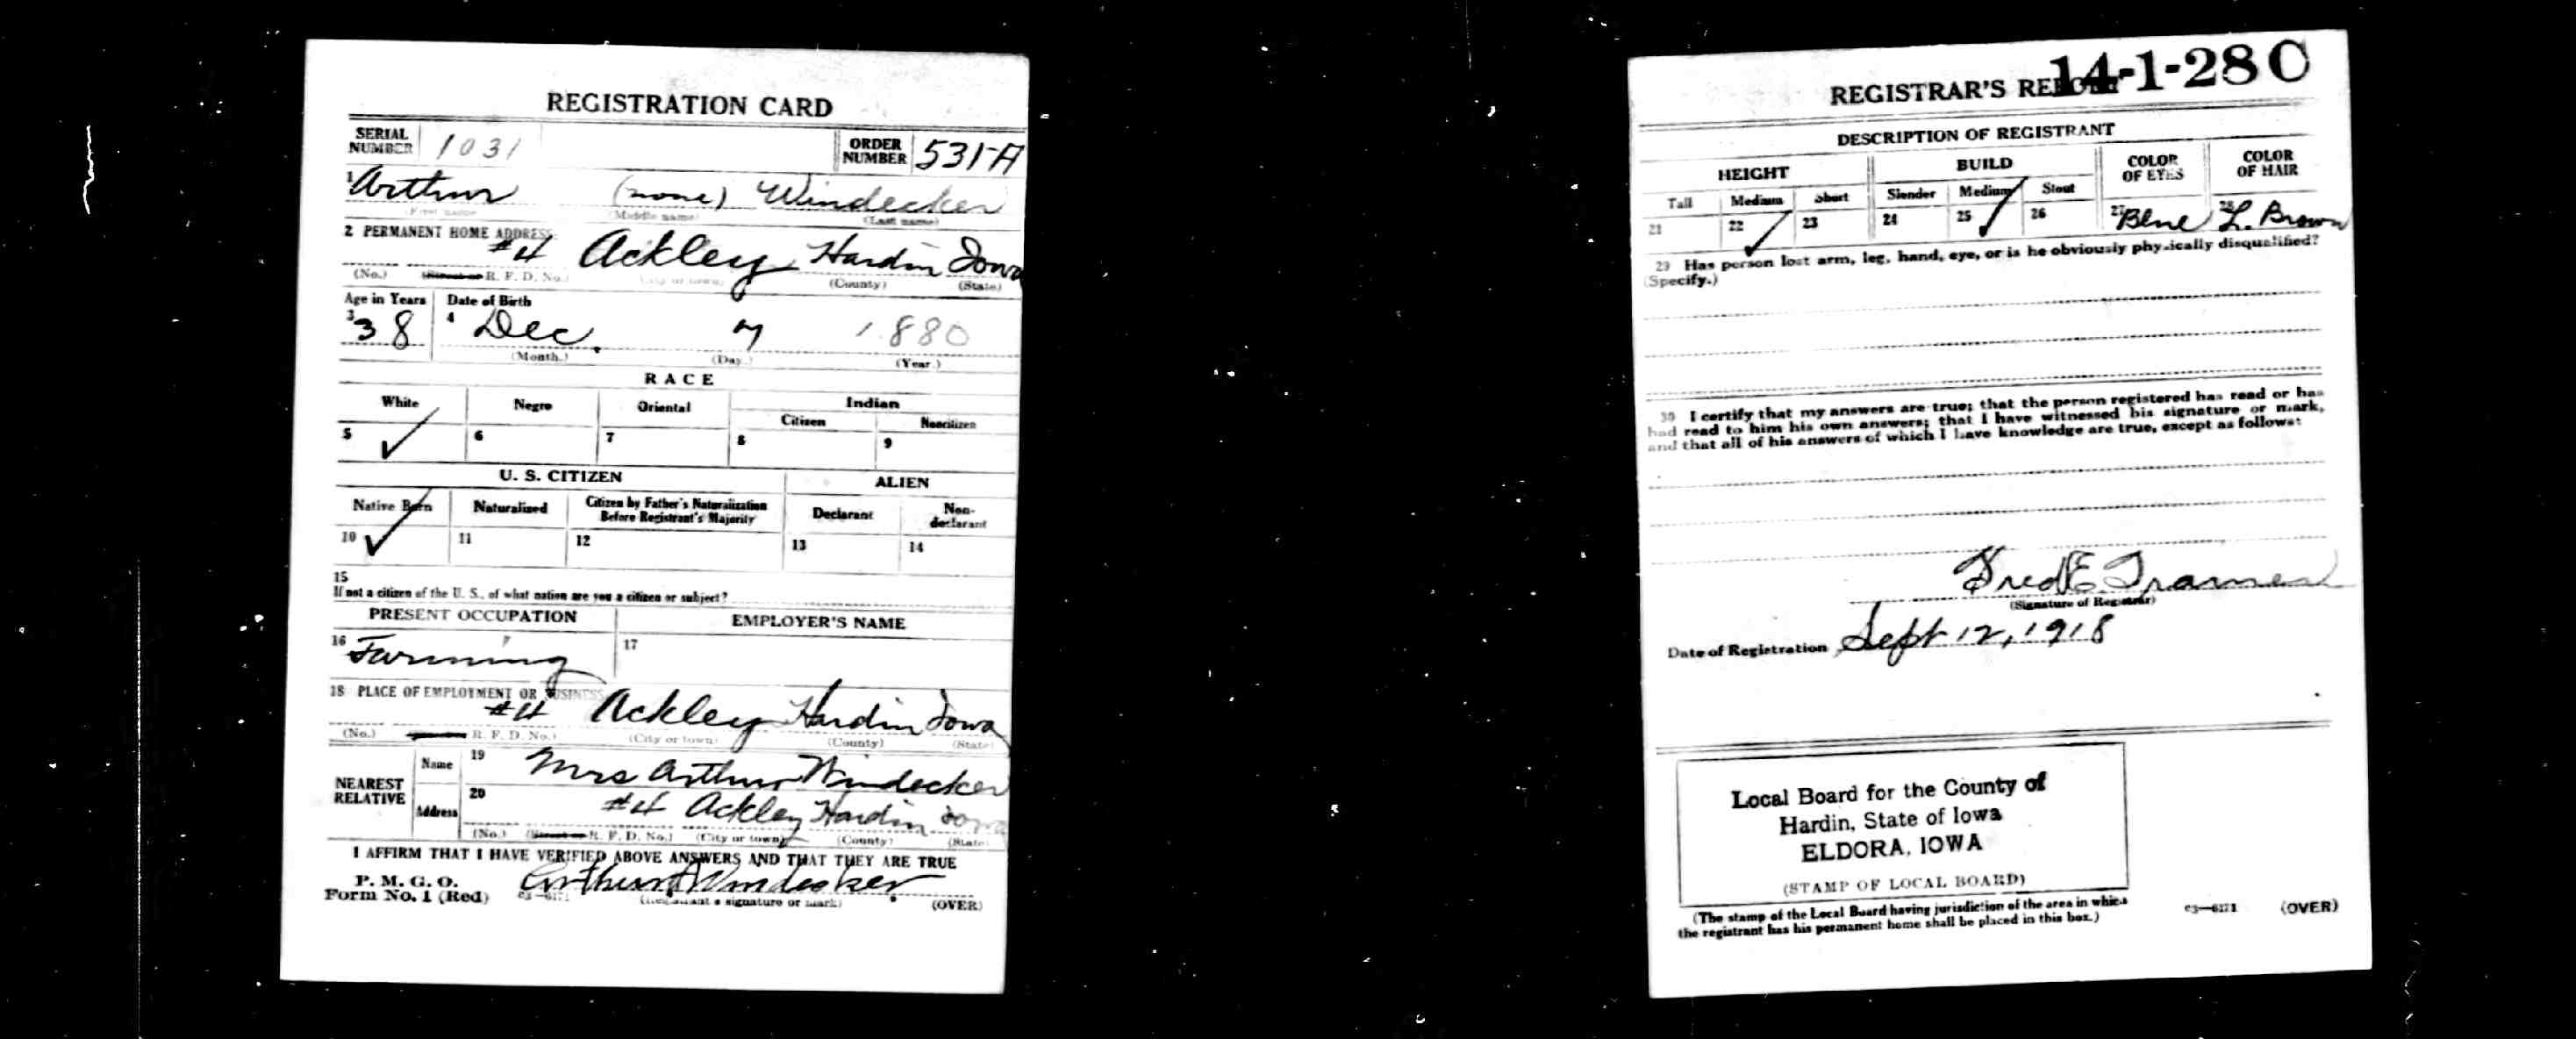 REGISTRATION CARD
SERIAL NUMBER 1031 ORDER NUMBER 531-A
1 Arthur (none) Windecker
(First name) (Middle name) (Last name)
2 PERMANENT HOME ADDRESS:
#4 Ackley Hardin Iowa
(No.) R. F. D. No.) (City or town) (County) (State)
Age in Years Date of Birth
3 38 4 Dec. 7 1880
(Month.) (Day.) (Year.)
RACE
White Negro Oriental Indian
Citizen Noncitizen
5 ✓ 6 7 8 9
U. S. CITIZEN ALIEN
Native Born Naturalized Citizen by Father's Naturalization Before Registrant's Majority Declarant Non-declarant
10 ✓ 11 12 13 14
15
If not a citizen of the U. S., of what nation are you a citizen or subject?
PRESENT OCCUPATION EMPLOYER'S NAME
16 Farming 17
18 PLACE OF EMPLOYMENT OR BUSINESS
#4 Ackley Hardin Iowa
(No.) R. F. D. No.) (City or town) (County) (State)
NEAREST RELATIVE Name 19 Mrs Arthur Windecker
Address 20 #4 Ackley Hardin Iowa
(No.) (Street or R. F. D. No.) (City or town) (County) (State)
I AFFIRM THAT I HAVE VERIFIED ABOVE ANSWERS AND THAT THEY ARE TRUE
P. M. G. O.
Form No. 1 (Red) c3—6171 Arthur Windecker
(Registrant's signature or mark) (OVER)
14-1-28 C
REGISTRAR'S REPORT
DESCRIPTION OF REGISTRANT
HEIGHT BUILD COLOR OF EYES COLOR OF HAIR
Tall Medium Short Slender Medium Stout
21 22 ✓ 23 24 25 ✓ 26 27 Blue 28 L. Brown
29 Has person lost arm, leg, hand, eye, or is he obviously physically disqualified?
(Specify.)
30 I certify that my answers are true; that the person registered has read or has
had read to him his own answers; that I have witnessed his signature or mark,
and that all of his answers of which I have knowledge are true, except as follows:
Fred E.
(Signature of Registrar)
Date of Registration Sept 12, 1918
Local Board for the County of
Hardin, State of Iowa
ELDORA, IOWA
(STAMP OF LOCAL BOARD)
(The stamp of the Local Board having jurisdiction of the area in which
the registrant has his permanent home shall be placed in this box.)
c3—6171 (OVER)